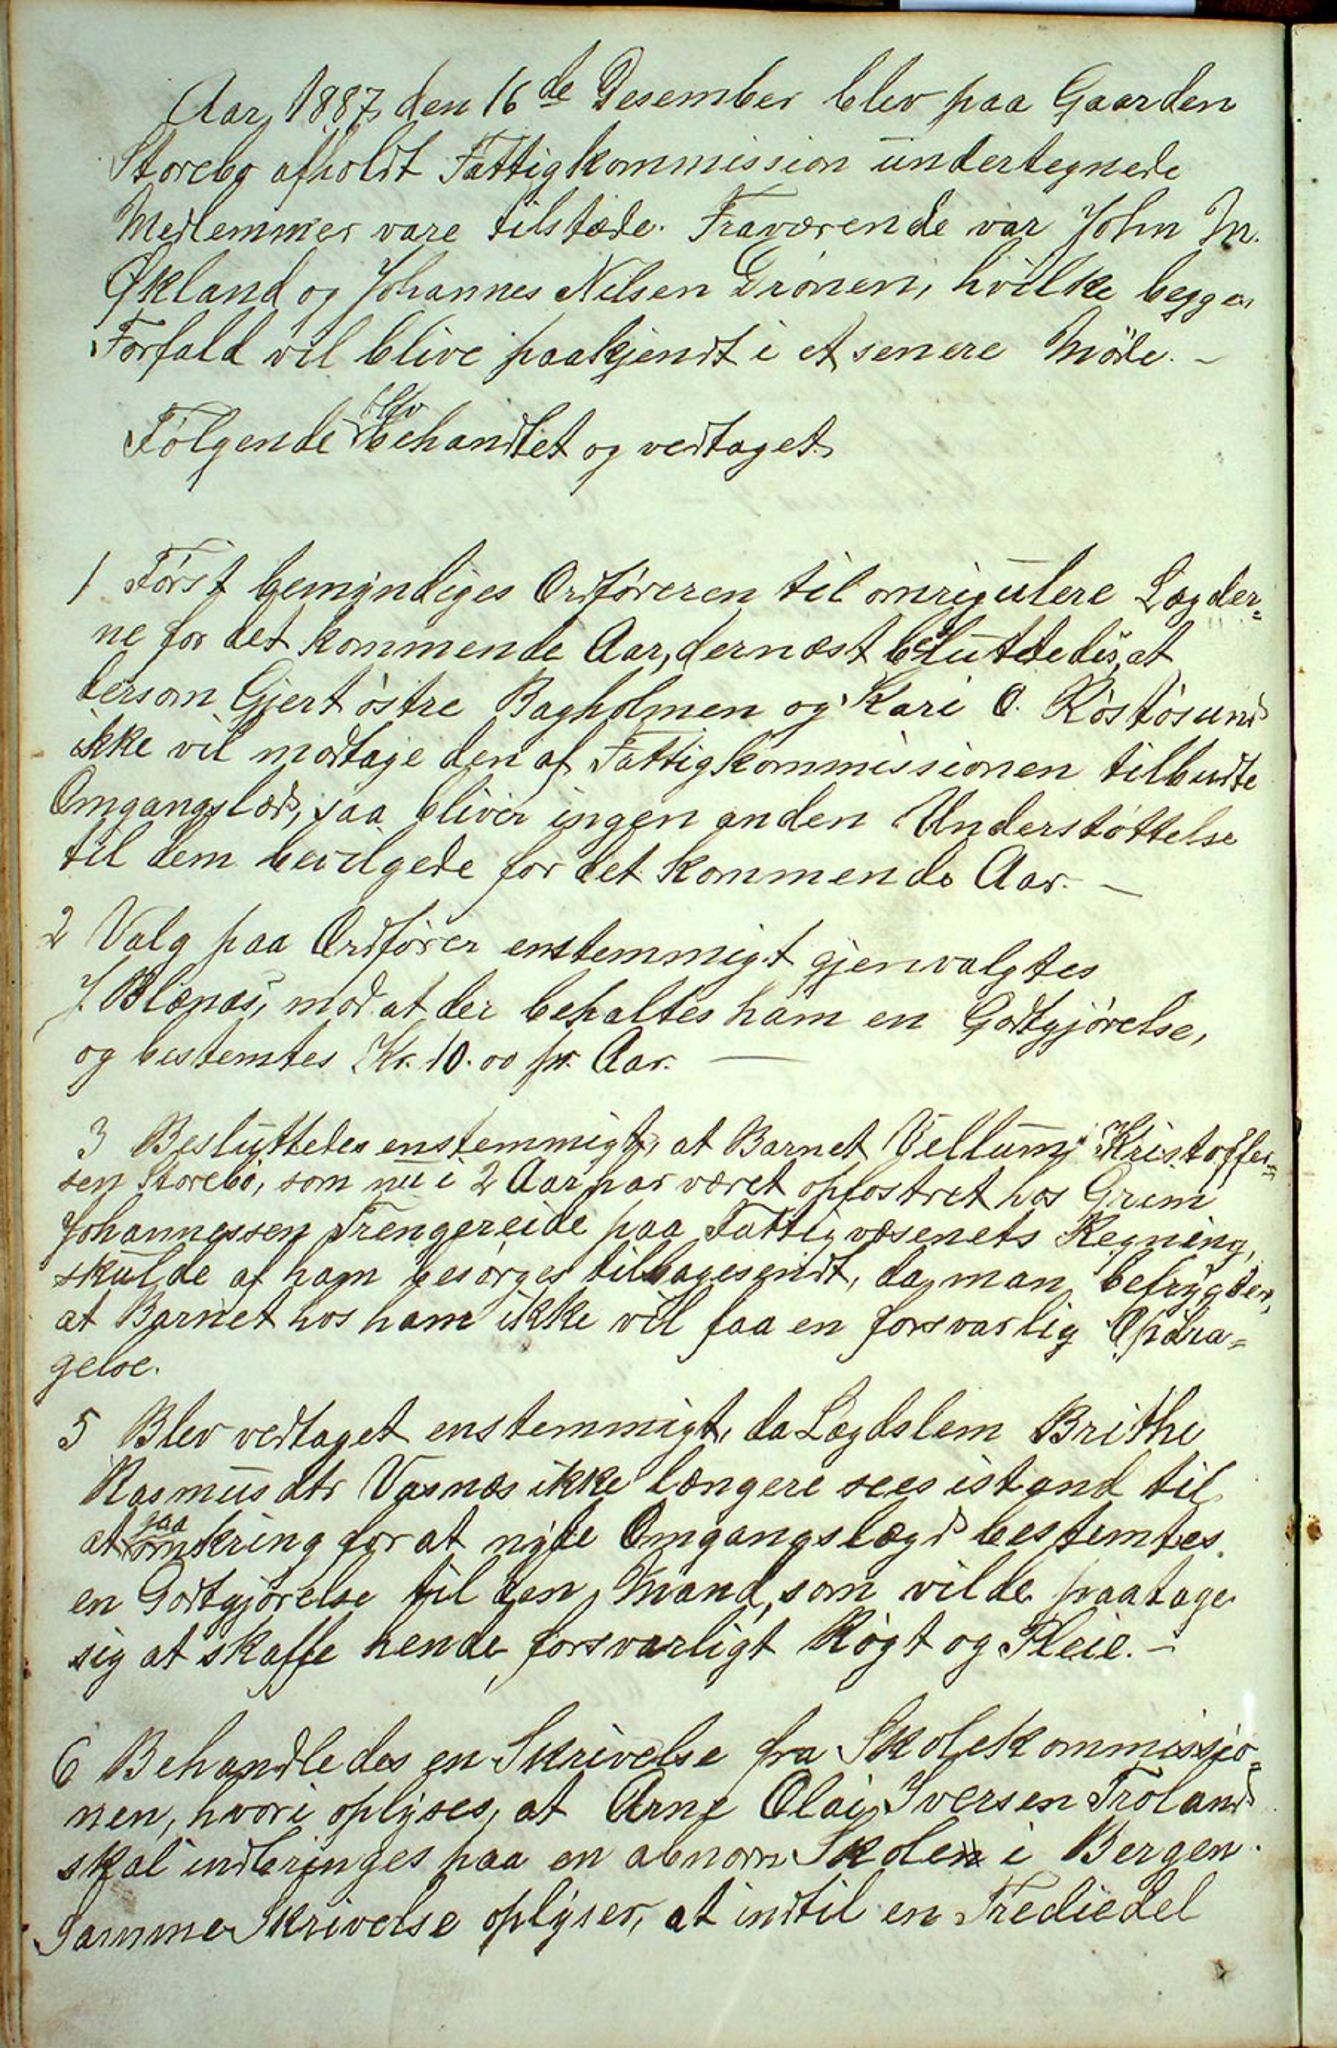 Aar 1887 den 16de Desember blev paa Gaarden
Storebø afholdt Fattigkommission undertegnede
Medlemmer vare tilstæde. Fraværende var John M.
Økland og Johannes Nilsen Drønen, hvilke begges
Forfald vil blive paakjendt i et senere Møde. -
Følgende blev behandlet og vedtaget
1 Først bemyndiges Ordføreren til omrigulere Lægder-
ne for det kommende Aar, dernæst besluttedes, at
dersom Gjert østre Bagholmen og Kari O. Røstøsund
ikke vil modtage den af Fattigkommissionen tilbudte
Omgangslæd, saa bliver ingen anden Understøttelse
til dem bevilgede for det kommende Aar. -
2 Valg paa Ordfører enstemmigt gjenvalgtes
J. Blænæs, mod at der behaltes ham en Godtgjørelse,
og bestemtes Kr. 10.00 pr. Aar. -
3 Besluttedes enstemmigt, at Barnet Villum Kristoffer-
sen Storebø, som nu i 2 Aar har været opfostret hos Grim
Johannessen Trengereide paa Fattigvæsenets Regning,
skulde af ham besørges tilbagesendt, da man befrygder,
at Barnet hos ham ikke vil faa en forsvarlig Opdra-
gelse.
5 Blev vedtaget enstemmigt, da Lægdslem Brithe
Rasmusdtr Vasnæs ikke længere sees istand til
at gaa omkring for at nyde Omgangslægd bestemtes
en Godtgjørelse til den Mand, som vilde paatage
sig at skaffe hende forsvarligt Røgt og Pleie. -
6 Behandledes en Skrivelse fra Skolekommissio-
nen, hvori oplyses, at Arne Olai Iversen Troland
skal indbringes paa en abnorm Skole i Bergen.
Samme Skrivelse oplyser, at indtil en Trediedel